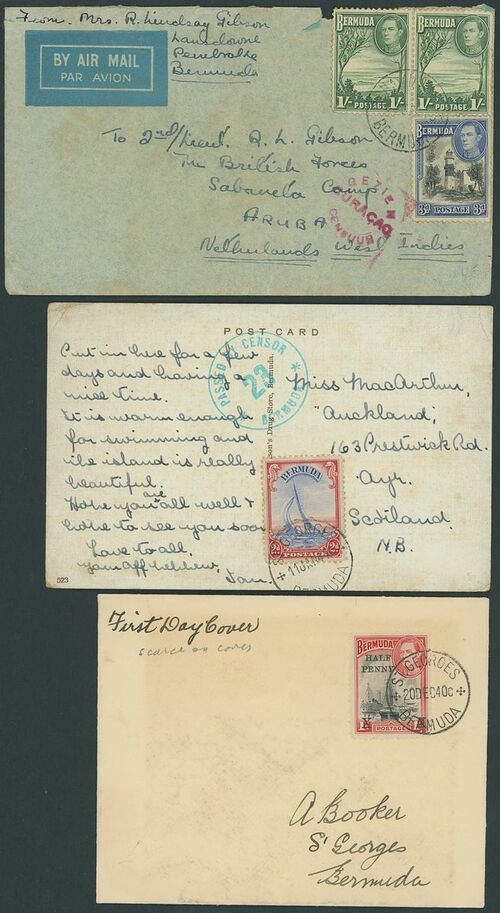 From Mrs. R. Lindsay Gibson
Lansdowne
Pembroke
Bermuda
BY AIR MAIL
PAR AVION
BERMUDA
1/- POSTAGE 1/-
BERMUDA
1/- POSTAGE 1/-
BERMUDA
3d POSTAGE 3d
BERMUDA
To 2nd/Lieut. R. L. Gibson
The British Forces
Sabaneta Camp
ARUBA
Netherlands West Indies
GEZIEN
CURAÇAO
CENSUUR
POST CARD
PASSED BY CENSOR
23
BERMUDA
son's Drug Store, Bermuda.
Put in here for a few
days and having a
nice time.
It is warm enough
for swimming and
the island is really
beautiful.
Hope you are all well &
hope to see you soon
Love to all.
Ian.
523
Miss MacArthur,
"Auckland,
163 Prestwick Rd.
Ayr.
Scotland
N.B.
BERMUDA
2d POSTAGE 2d
ST GEORGES
BERMUDA
First Day Cover
scarce on cover
BERMUDA
HALF
PENNY
X POSTAGE X
ST. GEORGES
20 DEC 40 C
BERMUDA
A Booker
St Georges
Bermuda